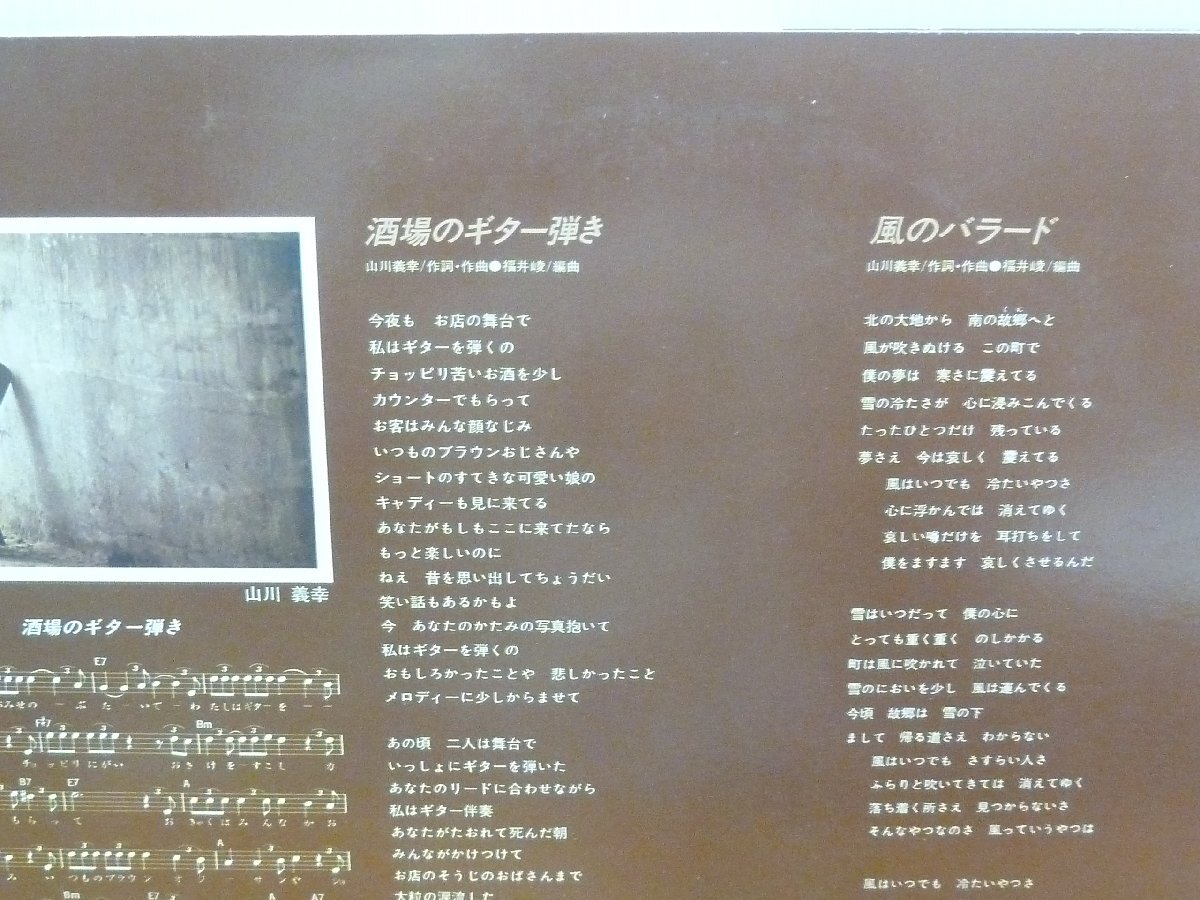 酒場のギター弾き
山川義幸/作詞・作曲●福井崚/編曲
今夜も　お店の舞台で
私はギターを弾くの
チョッピリ苦いお酒を少し
カウンターでもらって
お客はみんな顔なじみ
いつものブラウンおじさんや
ショートのすてきな可愛い娘の
キャディーも見に来てる
あなたがもしもここに来てたなら
もっと楽しいのに
ねえ　昔を思い出してちょうだい
笑い話もあるかもよ
今　あなたのかたみの写真抱いて
私はギターを弾くの
おもしろかったことや　悲しかったこと
メロディーに少しからませて
あの頃　二人は舞台で
いっしょにギターを弾いた
あなたのリードに合わせながら
私はギター伴奏
あなたがたおれて死んだ朝
みんながかけつけて
お店のそうじのおばさんまで
大粒の涙流した
風のバラード
山川義幸/作詞・作曲●福井崚/編曲
北の大地から　南の故郷へと
風が吹きぬける　この町で
僕の夢は　寒さに震えてる
雪の冷たさが　心に浸みこんでくる
たったひとつだけ　残っている
夢さえ　今は哀しく　震えてる
風はいつでも　冷たいやつさ
心に浮かんでは　消えてゆく
哀しい噂だけを　耳打ちをして
僕をますます　哀しくさせるんだ
雪はいつだって　僕の心に
とっても重く重く　のしかかる
町は風に吹かれて　泣いていた
雪のにおいを少し　風は運んでくる
今頃　故郷は　雪の下
まして　帰る道さえ　わからない
風はいつでも　さすらい人さ
ふらりと吹いてきては　消えてゆく
落ち着く所さえ　見つからないさ
そんなやつなのさ　風っていうやつは
風はいつでも　冷たいやつさ
山川 義幸
酒場のギター弾き
E7
F#7 Bm
チョッピリ にがい お さ け を ー す こ し カ
B7 E7 A
も ら っ て お きゃく は み ん な か お
A
い つもの ブラウン
Bm E7 A A7